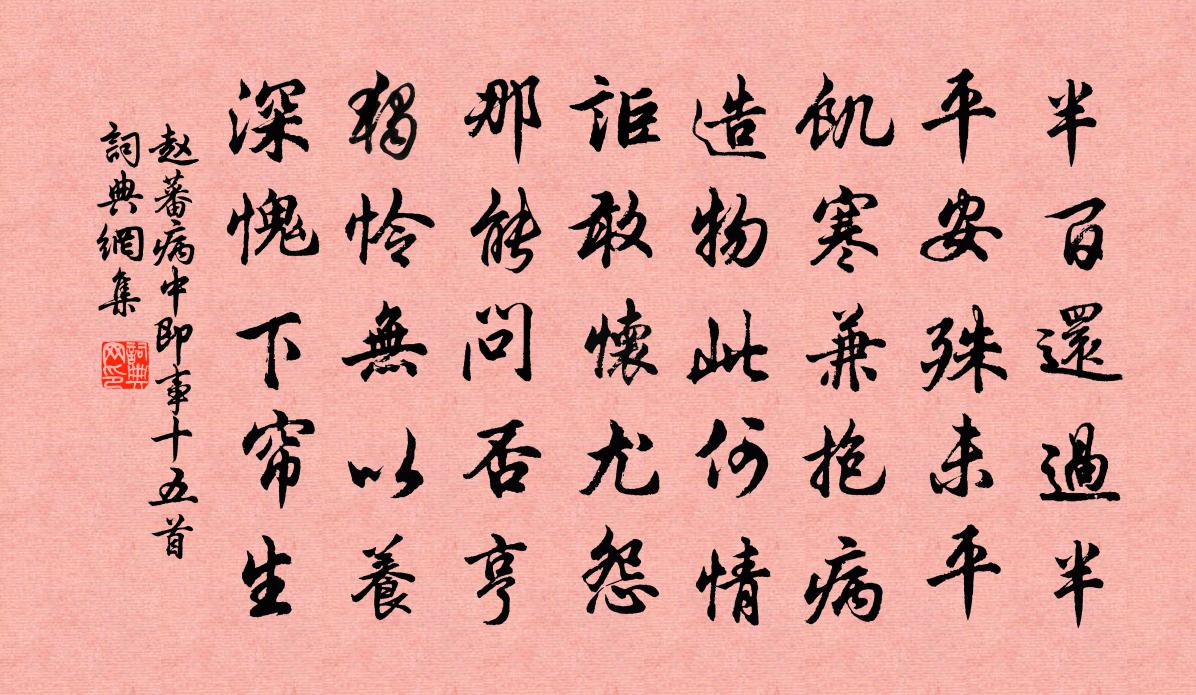 半百還過半
平安殊未平
飢寒兼抱病
造物此何情
詎敢懷尤怨
那能問否亨
獨怜無以養
深愧下帘生
赵蕃病中即事十五首
詞典網集
詞典網印